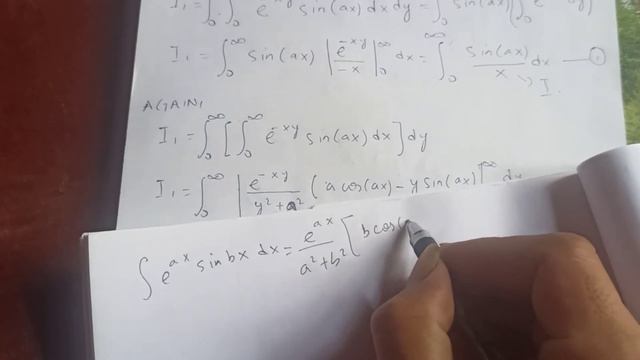 I₁ = ∫₀^∞ ∫₀^∞ e^-xy sin(ax) dx dy = ∫₀^∞ sin(ax)
I₁ = ∫₀^∞ sin(ax) | e^-xy / -x |₀^∞ dx = ∫₀^∞ sin(ax) / x dx — ①
I.
AGAIN,
I₁ = ∫₀^∞ [ ∫₀^∞ e^-xy sin(ax) dx ] dy
I₁ = ∫₀^∞ | e^-xy / y² + a² ( a cos(ax) - y sin(ax) |^∞ dy
∫ e^ax sin bx dx = e^ax / a² + b² [ b cos(